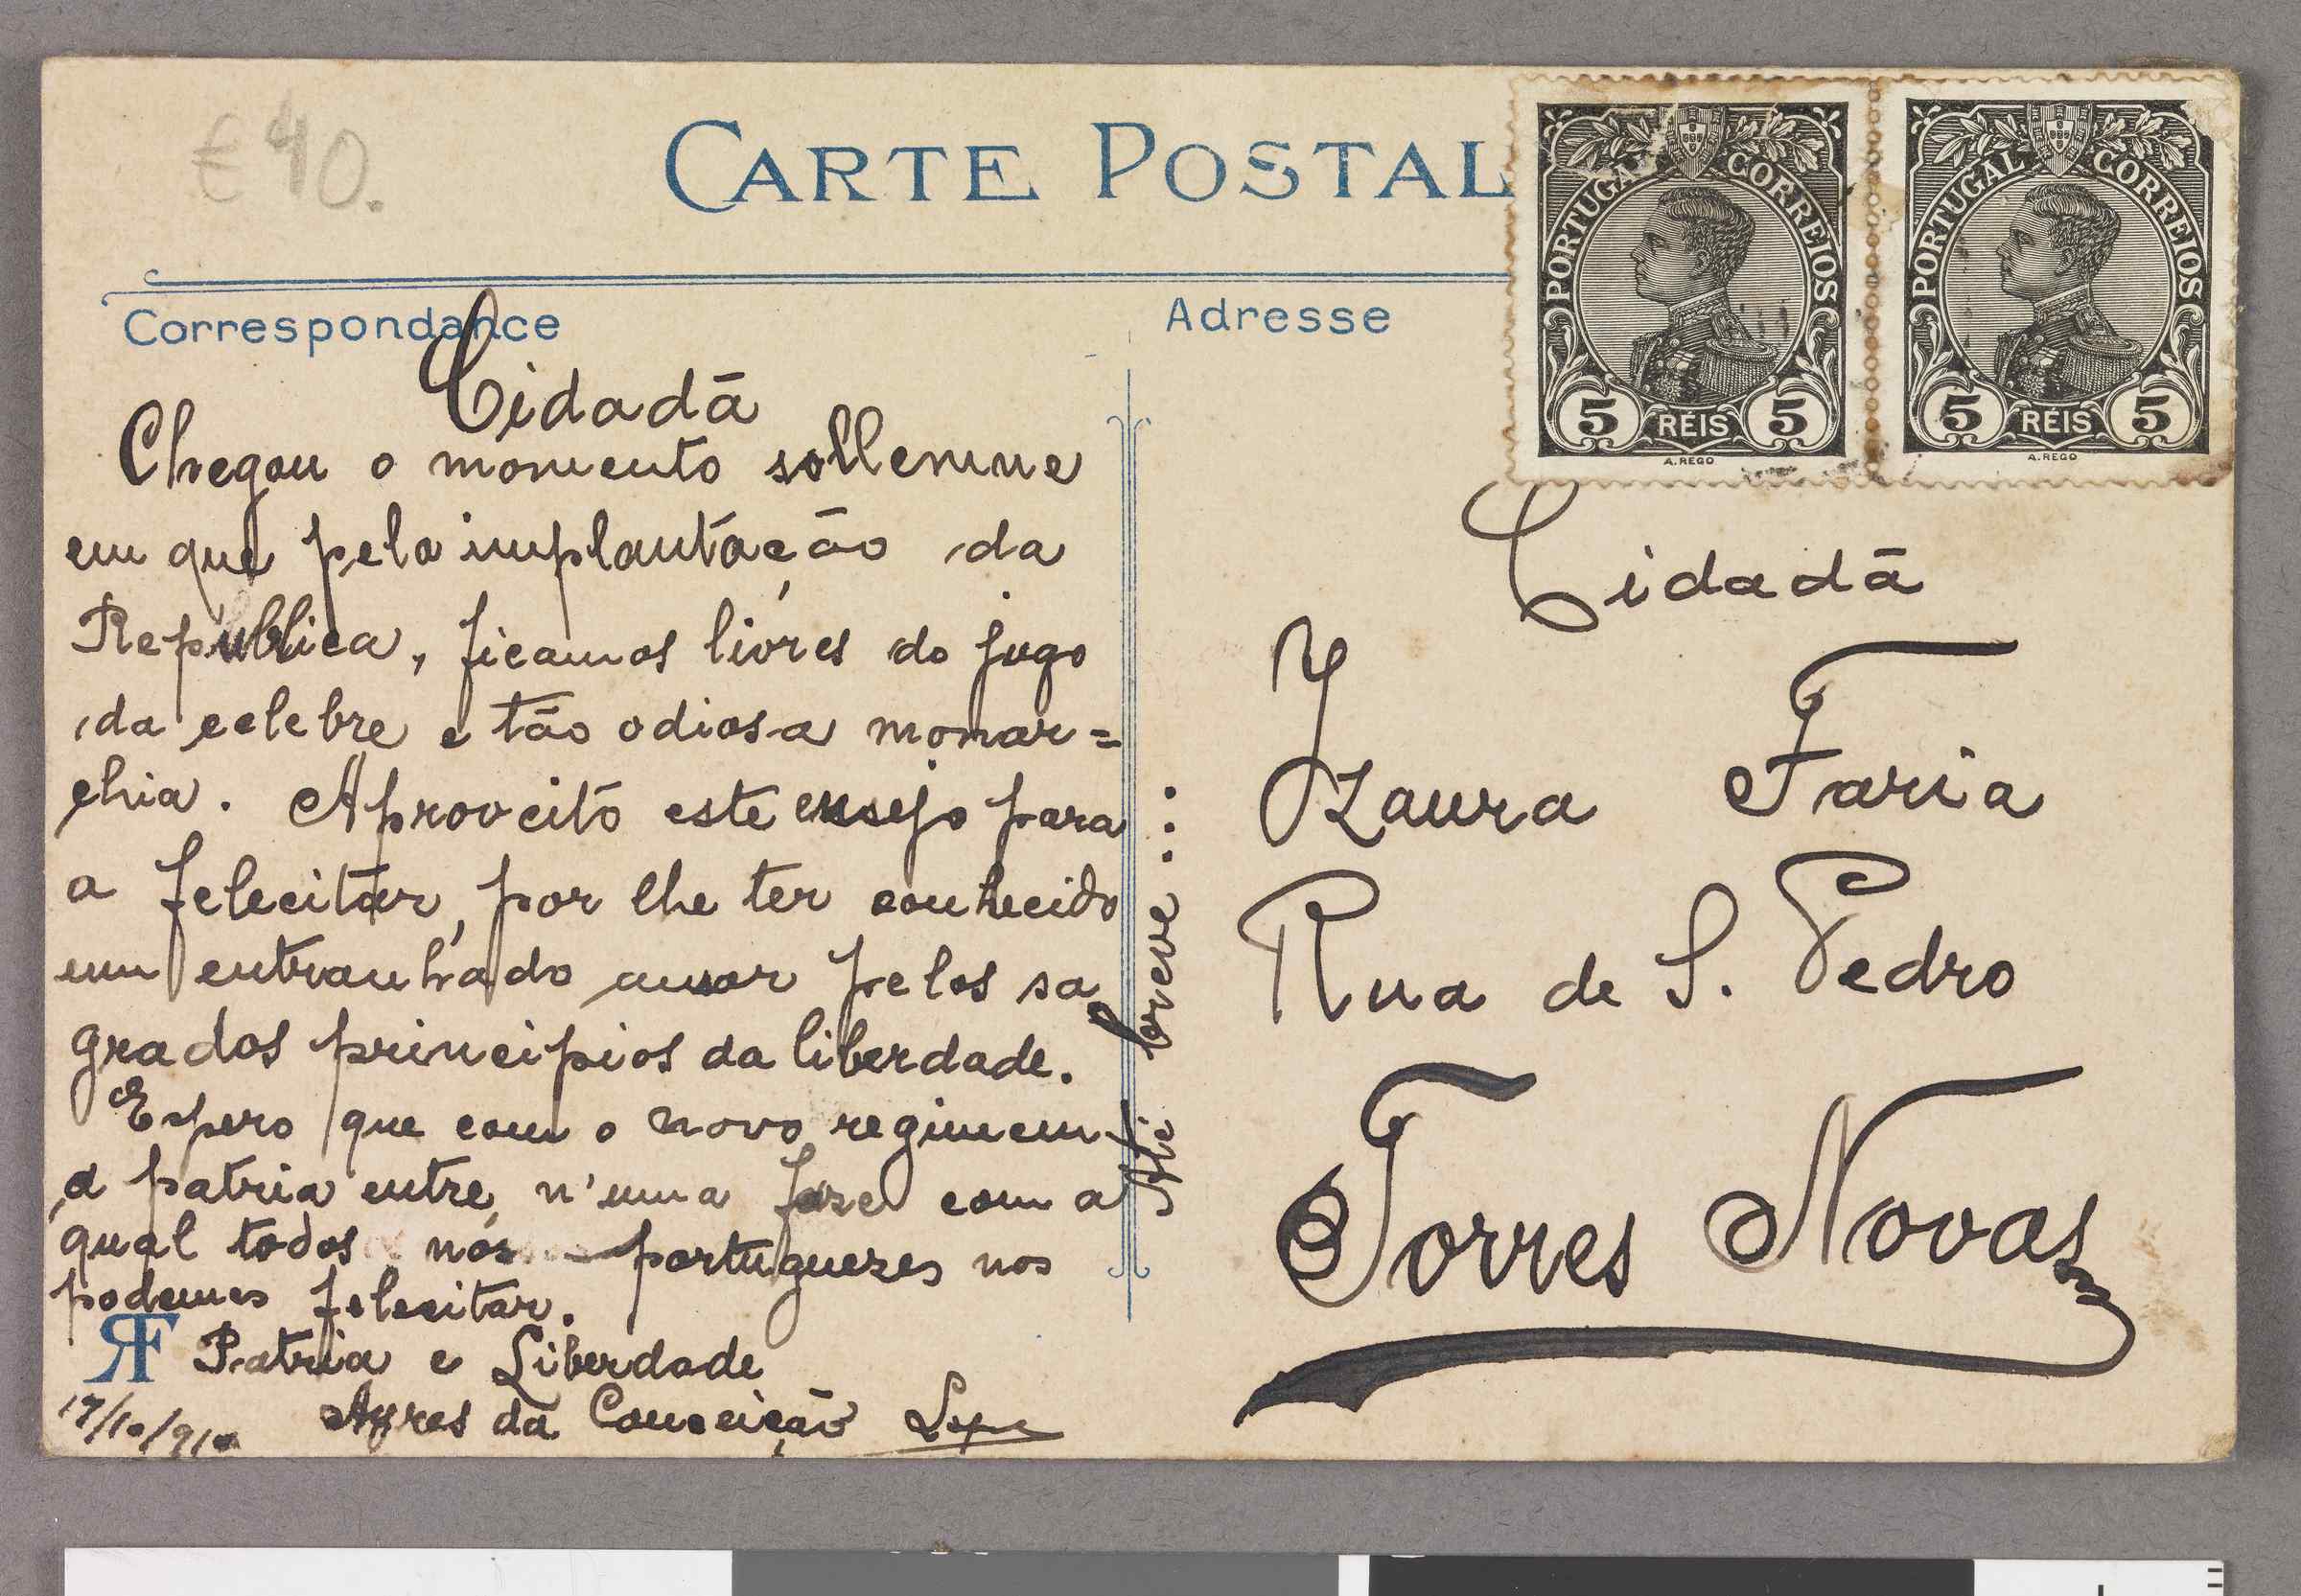 € 40.
CARTE POSTAL
PORTUGAL CORREIOS
5 RÉIS 5
A. REGO
PORTUGAL CORREIOS
5 RÉIS 5
A. REGO
Correspondance
Cidadã
Chegou o momento sollemne
em que pela implantação da
Republica, ficamos livres do jugo
da celebre e tão odiosa monar=
chia. Aproveito este ensejo para
a felecitar, por lhe ter conhecido
um entranhado amor pelos sa
grados principios da liberdade.
Espero que com o novo regimem
a patria entre n'uma fase com a
qual todos nós portuguezes nos
podemos felecitar.
RF Patria e Liberdade
17/10/910 Ayres da Conceição
Até breve
Adresse
Cidadã
Izaura Faria
Rua de S. Pedro
Torres Novas